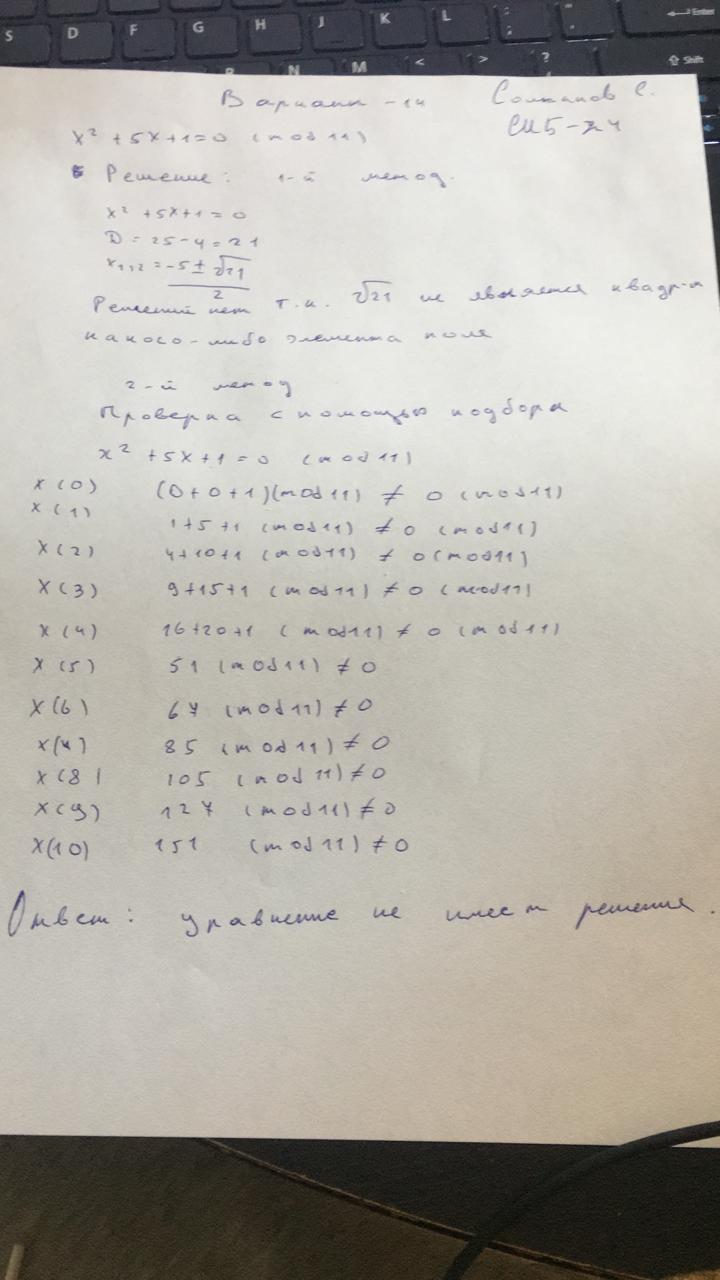 S D F G H J K L : ; " ' Enter
N M < > ? Shift
Вариант - 14 Солтанов С.
СМ5-24
x² + 5x + 1 = 0 (mod 11)
Решение: 1-й метод.
x² + 5x + 1 = 0
D = 25 - 4 = 21
x₁,₂ = -5 ± √21
2
Решений нет т.к. √21 не является квадр-м
какого-либо элемента поля
2-й метод
Проверка с помощью подбора
x² + 5x + 1 = 0 (mod 11)
x(0) (0+0+1)(mod 11) ≠ 0 (mod 11)
x(1) 1+5+1 (mod 11) ≠ 0 (mod 11)
x(2) 4+10+1 (mod 11) ≠ 0 (mod 11)
x(3) 9+15+1 (mod 11) ≠ 0 (mod 11)
x(4) 16+20+1 (mod 11) ≠ 0 (mod 11)
x(5) 51 (mod 11) ≠ 0
x(6) 67 (mod 11) ≠ 0
x(7) 85 (mod 11) ≠ 0
x(8) 105 (mod 11) ≠ 0
x(9) 127 (mod 11) ≠ 0
x(10) 151 (mod 11) ≠ 0
Ответ: уравнение не имеет решения.